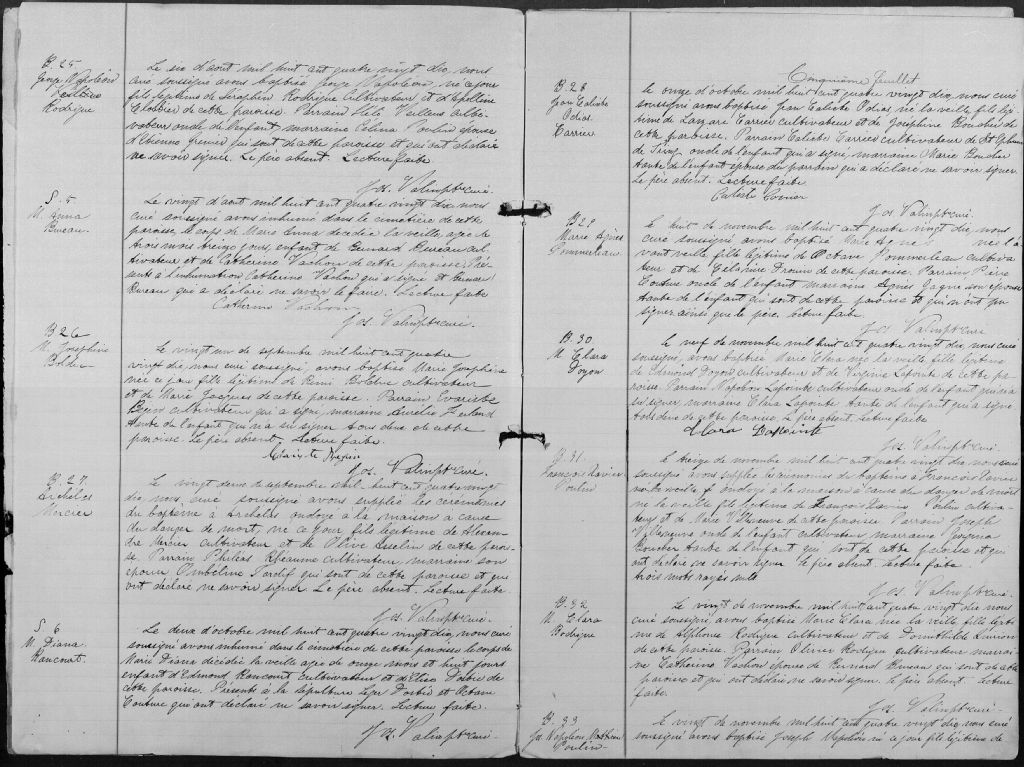 B. 25
George Napoléon
Rodrigue
Le six d'aout mil huit cent quatre vingt dix, nous
curé soussigné avons baptisé George Napoléon, né ce jour
fils légitime de Séraphin Rodrigue cultivateur et d'Apolline
Cloutier de cette paroisse. Parrain Félix Veilleux culti-
vateur oncle de l'enfant marraine Célina Poulin épouse
d'Etienne Grenier qui sont de cette paroisse et qui ont déclaré
ne savoir signer. Le père absent. Lecture faite
Jos. Valin ptre curé.
S. 5
M. Anna
Bureau.
Le vingt d'aout mil huit cent quatre vingt dix, nous
curé soussigné avons inhumé dans le cimetière de cette
paroisse, le corps de Marie Anna décédée la veille, agée de
trois mois treize jours, enfant de Bernard Bureau cul-
tivateur et de Catherine Vachon de cette paroisse. Pré-
sents à l'inhumation Catherine Vachon qui a signé et Bernard
Bureau qui a déclaré ne savoir le faire. Lecture faite
Catherine Vachon
Jos. Valin ptre curé.
B 26
M. Joséphine
Bolduc
Le vingt un de septembre mil huit cent quatre
vingt dix, nous curé soussigné, avons baptisé Marie Joséphine
née ce jour fille légitime de Rémi Bolduc cultivateur
et de Marie Jacques de cette paroisse. Parrain Evariste
cultivateur qui a signé, marraine
tante de l'enfant qui n'a su signer tous deux de cette
paroisse. Le père absent. Lecture faite.
Jos. Valin ptre curé.
B. 27.
Archélas
Mercier
Le vingt deux de septembre mil huit cent quatre vingt
dix, nous curé soussigné avons supplée les cérémonies
du baptême à Archélas ondoyé à la maison à cause
du danger de mort, né ce jour fils légitime de Alexan-
dre Mercier cultivateur et de Olive de cette parois-
se. Parrain Philéas Rhéaume cultivateur, marraine son
épouse Ombéline Tardif qui sont de cette paroisse et qui
ont déclaré ne savoir signer. Le père absent. Lecture faite.
Jos. Valin ptre curé.
S. 6
M. Diana
Rancourt.
Le deux d'octobre mil huit cent quatre vingt dix, nous curé
soussigné avons inhumé dans le cimetière de cette paroisse le corps de
Marie Diana décédée la veille agée de onze mois et huit jours
enfant d'Edmond Rancourt cultivateur et d'Elise Doubé de
cette paroisse. Présents à la sépulture Léger Doubé et Octave
Couture qui ont déclaré ne savoir signer. Lecture faite.
Jos. Valin ptre curé.
Cinquième feuillet
B. 28
Jean Caliste
Odias
Carrier
Le onze d'octobre mil huit cent quatre vingt dix, nous curé
soussigné avons baptisé Jean Caliste Odias, né la veille, fils légi-
time de Lazare Carrier cultivateur et de Joséphine Boucher de
cette paroisse. Parrain Caliste Carrier cultivateur de St Ephrem
de Tring oncle de l'enfant qui a signé, marraine Marie Boucher
tante de l'enfant épouse du parrain qui a déclaré ne savoir signer.
Le père absent. Lecture faite
Jos. Valin ptre curé.
B 29
Marie Agnès
Pommerleau
Le huit de novembre mil huit cent quatre vingt dix, nous
curé soussigné avons baptisé Marie Agnès née l'a
vant veille, fille légitime de Octave Pommerleau cultiva-
teur et de Delaphine Drouin de cette paroisse. Parrain Pierre
Couture oncle de l'enfant marraine Agnès Gagné son épouse
tante de l'enfant qui sont de cette paroisse et qui n'ont pu
signer ainsi que le père. Lecture faite.
Jos. Valin ptre curé
B. 30
M. Clara
Doyon
Le neuf de novembre mil huit cent quatre vingt dix, nous curé
soussigné, avons baptisé Marie Clara née la veille fille légitime
de Edmond Doyon cultivateur et de Virginie Lapointe de cette pa-
roisse. Parrain Napoléon Lapointe cultivateur oncle de l'enfant qui n'a
su signer, marraine Clara Lapointe tante de l'enfant qui a signé
tous deux de cette paroisse. Le père absent. Lecture faite
Clara Lapointe
Jos. Valin ptre curé.
B. 31.
François Xavier
Poulin
Le treize de novembre mil huit cent quatre vingt dix, nous curé
soussigné avons supplée les cérémonies du baptême à François Xavier
né la veille et ondoyé à la maison à cause du danger de mort
né la veille fils légitime de François Xavier Poulin cultiva-
teur et de Marie Villeneuve de cette paroisse. Parrain Joseph
Villeneuve oncle de l'enfant cultivateur marraine Georgina
Boucher tante de l'enfant qui sont de cette paroisse et qui
ont déclaré ne savoir signer. Le père absent. Lecture faite
trois mots rayés nuls
Jos. Valin ptre curé.
B. 32
M. Clara
Rodrigue
Le vingt de novembre mil huit cent quatre vingt dix, nous
curé soussigné, avons baptisé Marie Clara née la veille, fille légiti-
me de Alphonse Rodrigue cultivateur et de
de cette paroisse. Parrain Olivier Rodrigue cultivateur marrai-
ne Catherine Vachon épouse de Bernard Bureau qui sont de cette
paroisse et qui ont déclaré ne savoir signer. Le père absent. Lecture
faite.
Jos. Valin ptre curé.
B. 33
Jos. Napoléon
Poulin
Le vingt de novembre mil huit cent quatre vingt dix, nous curé
soussigné avons baptisé Joseph Napoléon né ce jour fils légitime de